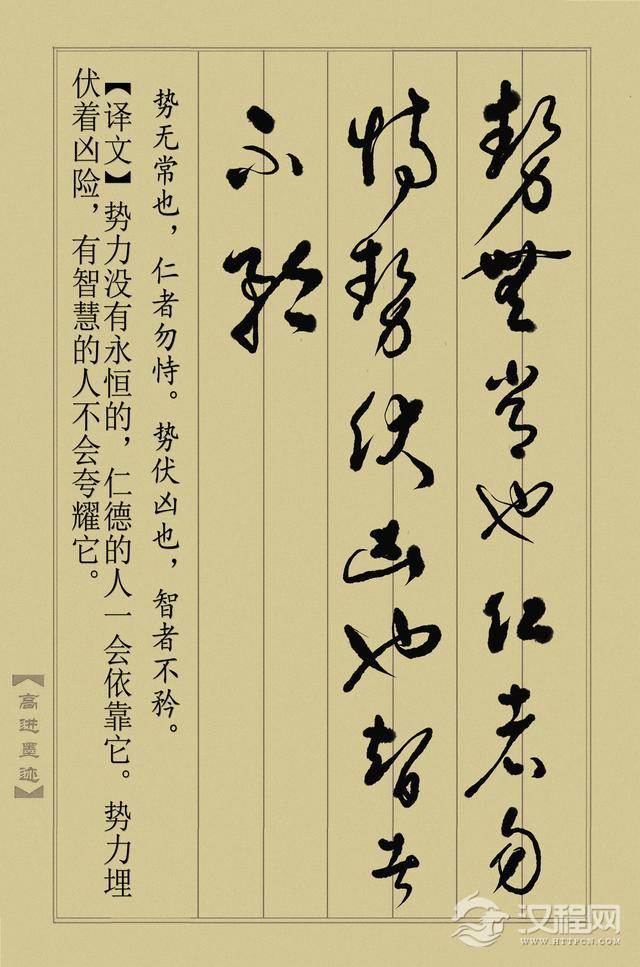 勢無常也仁者勿
恃勢伏凶也智者
不矜
势无常也，仁者勿恃。势伏凶也，智者不矜。
【译文】势力没有永恒的，仁德的人一会依靠它。势力埋
伏着凶险，有智慧的人不会夸耀它。
【高进墨迹】
汉程网
WWW.HTTPCN.COM